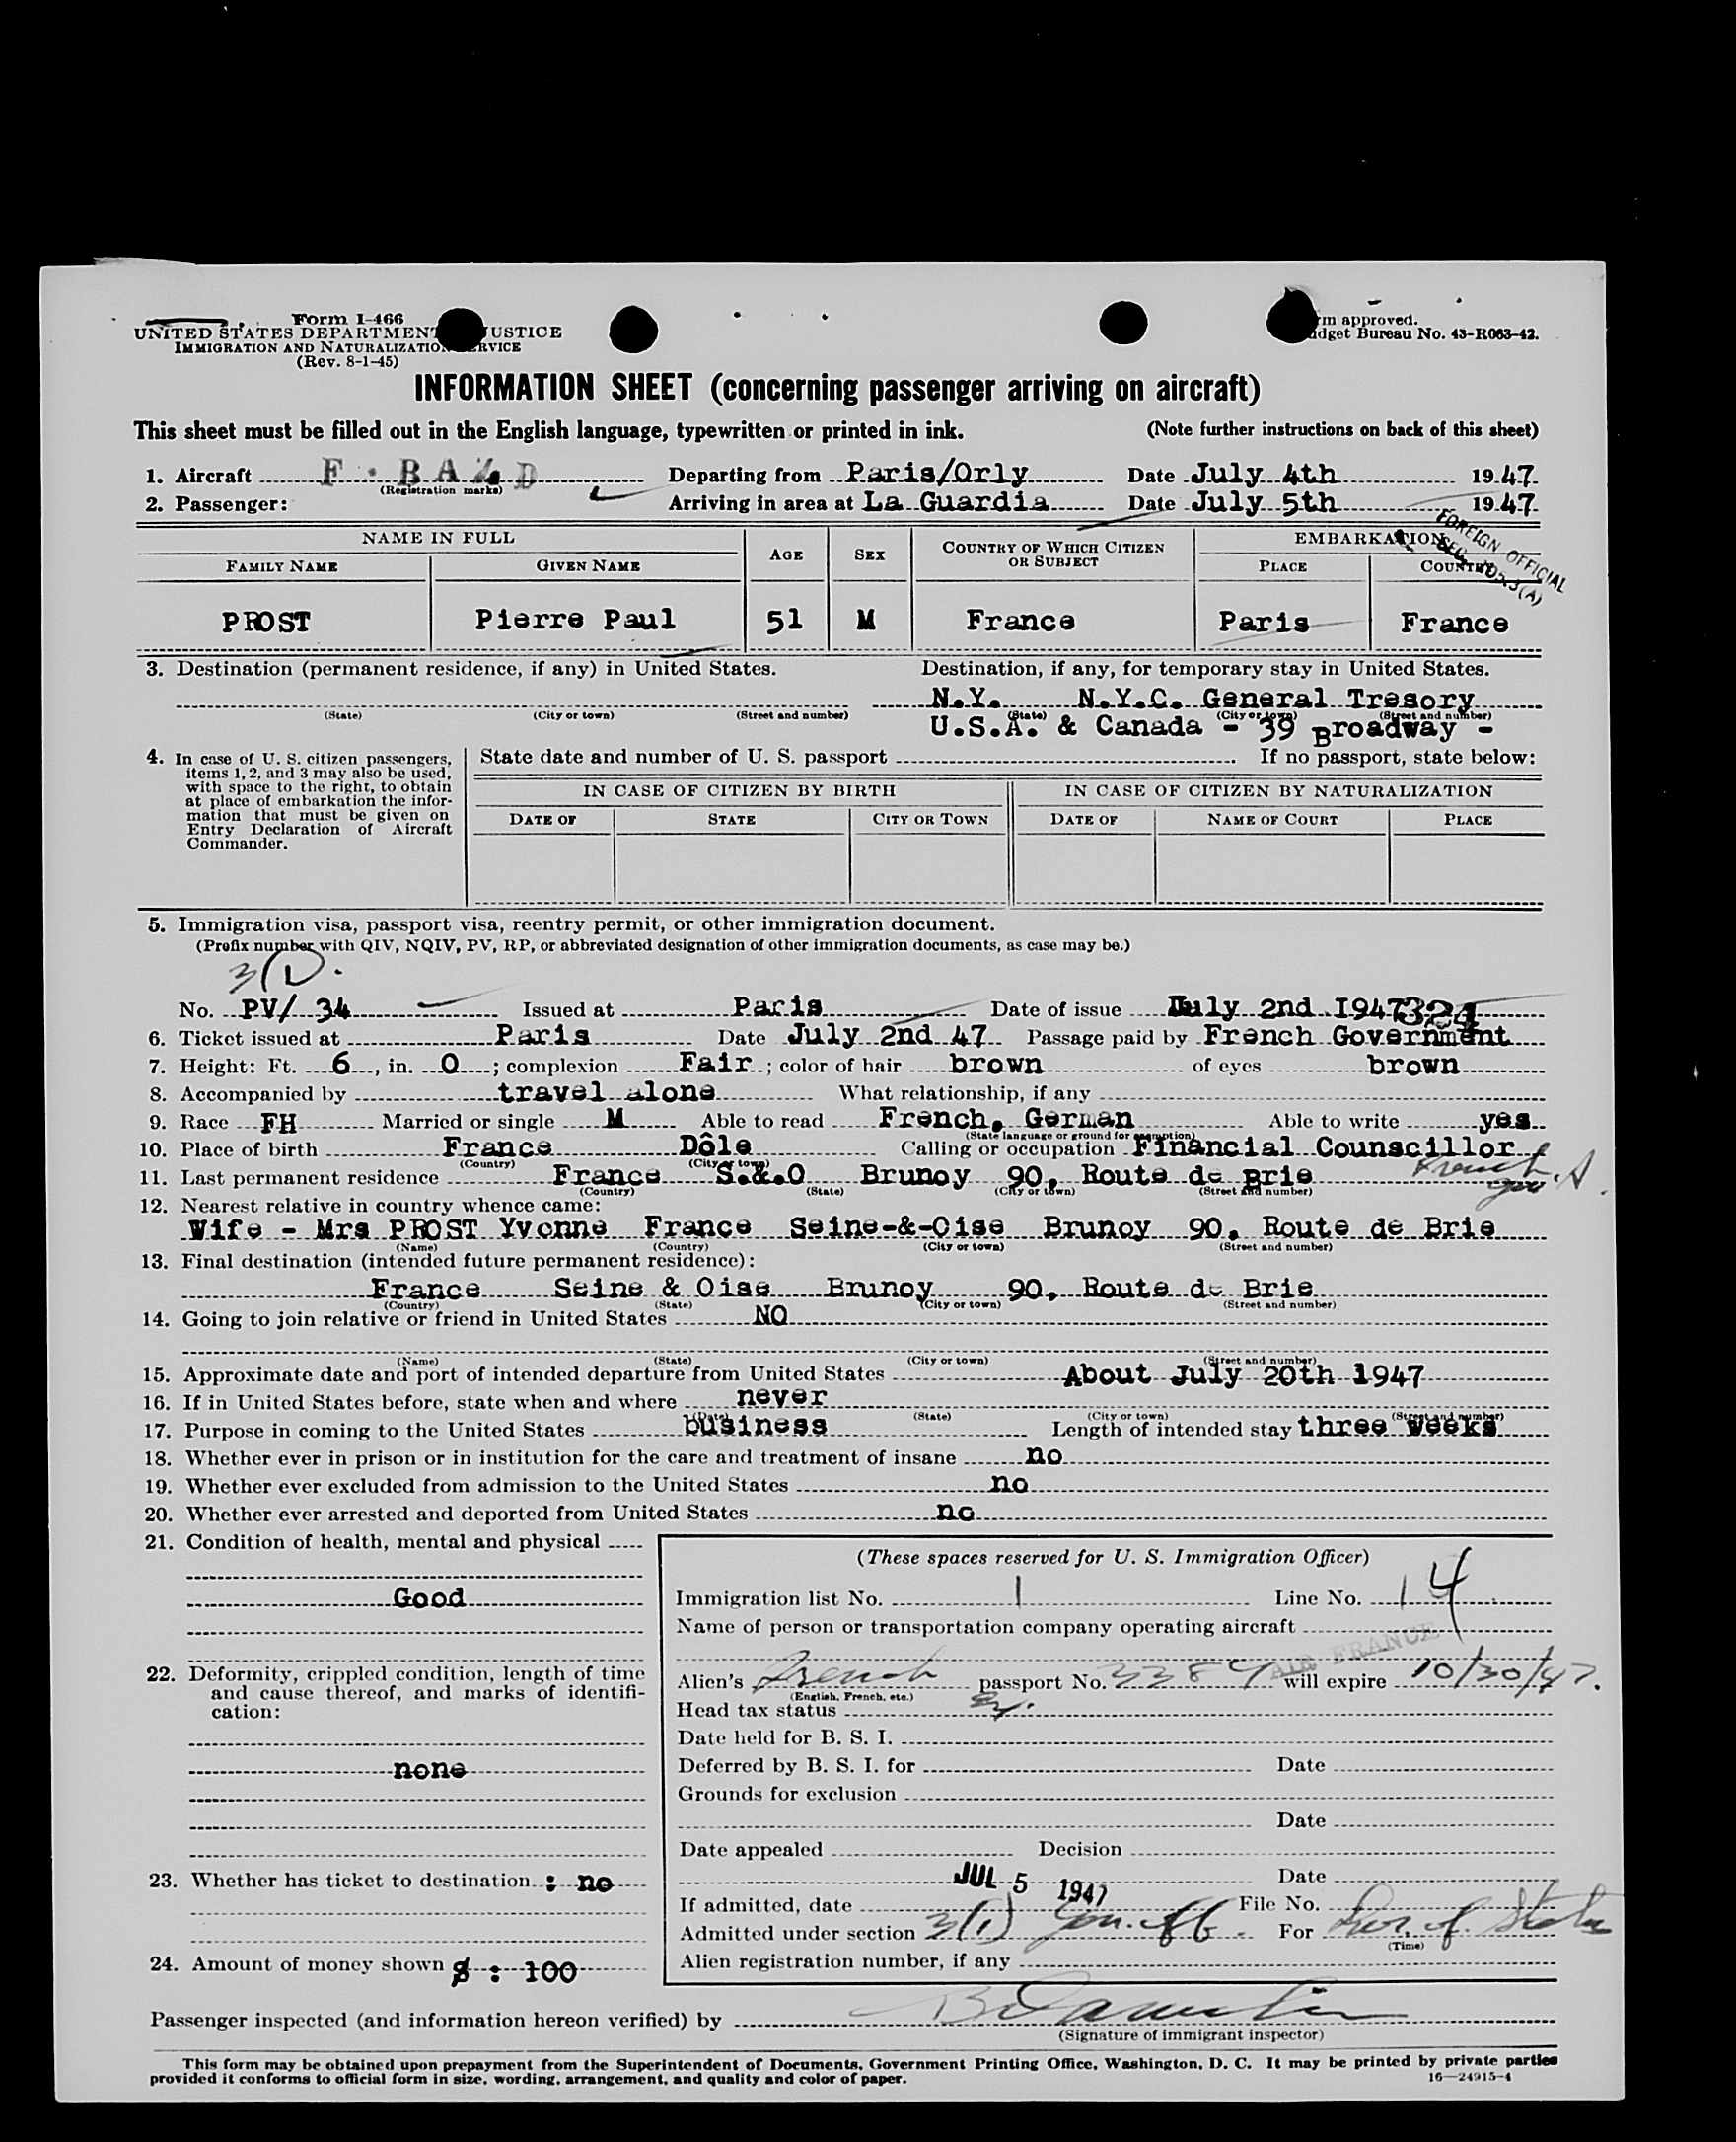 Form 1-466
UNITED STATES DEPARTMENT JUSTICE
IMMIGRATION AND NATURALIZATION SERVICE
(Rev. 8-1-45)
approved.
Budget Bureau No. 43-R063-42.
INFORMATION SHEET (concerning passenger arriving on aircraft)
This sheet must be filled out in the English language, typewritten or printed in ink. (Note further instructions on back of this sheet)
1. Aircraft F · BAZD Departing from Paris/Orly Date July 4th 1947
(Registration marks)
2. Passenger: Arriving in area at La Guardia Date July 5th 1947
FOREIGN OFFICIAL
NAME IN FULL AGE SEX COUNTRY OF WHICH CITIZEN OR SUBJECT EMBARKATION
FAMILY NAME GIVEN NAME PLACE COUNTRY
PROST Pierre Paul 51 M France Paris France
3. Destination (permanent residence, if any) in United States. Destination, if any, for temporary stay in United States.
N.Y. N.Y.C. General Tresory
(State) (City or town) (Street and number) (State) (City or town) (Street and number)
U.S.A. & Canada - 39 Broadway -
4. In case of U. S. citizen passengers, items 1, 2, and 3 may also be used, with space to the right, to obtain at place of embarkation the information that must be given on Entry Declaration of Aircraft Commander.
State date and number of U. S. passport If no passport, state below:
IN CASE OF CITIZEN BY BIRTH IN CASE OF CITIZEN BY NATURALIZATION
DATE OF STATE CITY OR TOWN DATE OF NAME OF COURT PLACE
5. Immigration visa, passport visa, reentry permit, or other immigration document.
(Prefix number with QIV, NQIV, PV, RP, or abbreviated designation of other immigration documents, as case may be.)
3(1).
No. PV/ 34 Issued at Paris Date of issue July 2nd I947 324
6. Ticket issued at Paris Date July 2nd 47 Passage paid by French Government
7. Height: Ft. 6, in. 0; complexion Fair; color of hair brown of eyes brown
8. Accompanied by travel alone What relationship, if any
9. Race FH Married or single M Able to read French, German Able to write yes
(State language or ground for exemption)
10. Place of birth France Dôle Calling or occupation Financial Counscillor
(Country) (City or town)
French gov.
11. Last permanent residence France S.&.O Brunoy 90, Route de Brie
(Country) (State) (City or town) (Street and number)
12. Nearest relative in country whence came:
Wife - Mrs PROST Yvonne France Seine-&-Oise Brunoy 90, Route de Brie
(Name) (Country) (City or town) (Street and number)
13. Final destination (intended future permanent residence):
France Seine & Oise Brunoy 90, Route de Brie
(Country) (State) (City or town) (Street and number)
14. Going to join relative or friend in United States NO
(Name) (State) (City or town) (Street and number)
15. Approximate date and port of intended departure from United States About July 20th 1947
16. If in United States before, state when and where never
(Date) (State) (City or town) (Street and number)
17. Purpose in coming to the United States business Length of intended stay three weeks
18. Whether ever in prison or in institution for the care and treatment of insane no
19. Whether ever excluded from admission to the United States no
20. Whether ever arrested and deported from United States no
21. Condition of health, mental and physical
Good
22. Deformity, crippled condition, length of time and cause thereof, and marks of identification:
none
23. Whether has ticket to destination : no
24. Amount of money shown $ : 100
(These spaces reserved for U. S. Immigration Officer)
Immigration list No. 1 Line No. 14
Name of person or transportation company operating aircraft
AIR FRANCE
Alien's French passport No. 3384 will expire 10/30/47.
(English, French, etc.)
Head tax status
Date held for B. S. I.
Deferred by B. S. I. for Date
Grounds for exclusion
Date
Date appealed Decision
Date
JUL 5 1947
If admitted, date File No.
Admitted under section 3(1) For
(Time)
Alien registration number, if any
Passenger inspected (and information hereon verified) by
(Signature of immigrant inspector)
This form may be obtained upon prepayment from the Superintendent of Documents, Government Printing Office, Washington, D. C. It may be printed by private parties
provided it conforms to official form in size, wording, arrangement, and quality and color of paper. 16—24915-4